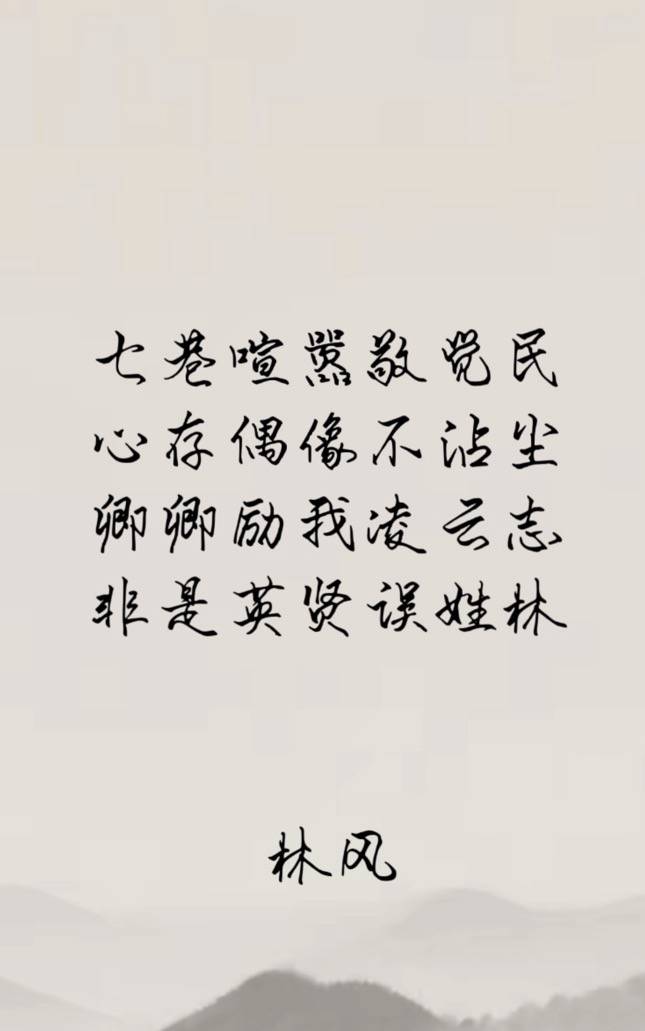 七巷喧嚣敬觉民
心存偶像不沾尘
卿卿励我凌云志
非是英贤误姓林
林风